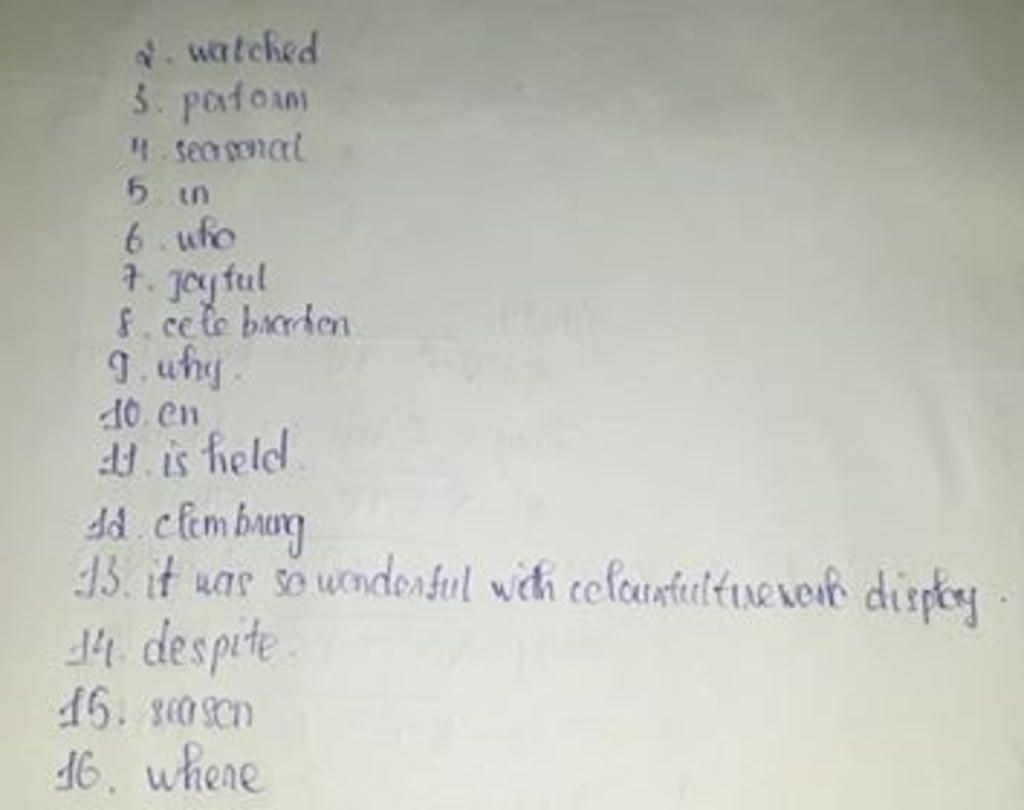 2. watched
3. perform
4. seasonal
5. in
6. who
7. joyful
8. celebration
9. why.
10. on
11. is held.
12. climbing
13. it was so wonderful with colourful firework display.
14. despite.
15. season
16. where